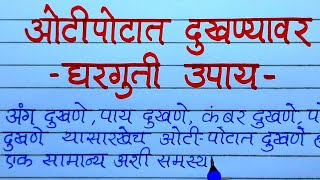 ओटीपोटात दुखण्यावर
-घरगुती उपाय-
अंग दुखणे, पाय दुखणे, कंबर दुखणे,
दुखणे यासारखेच ओटी-पोटात दुखणे
एक सामान्य अशी समस्य